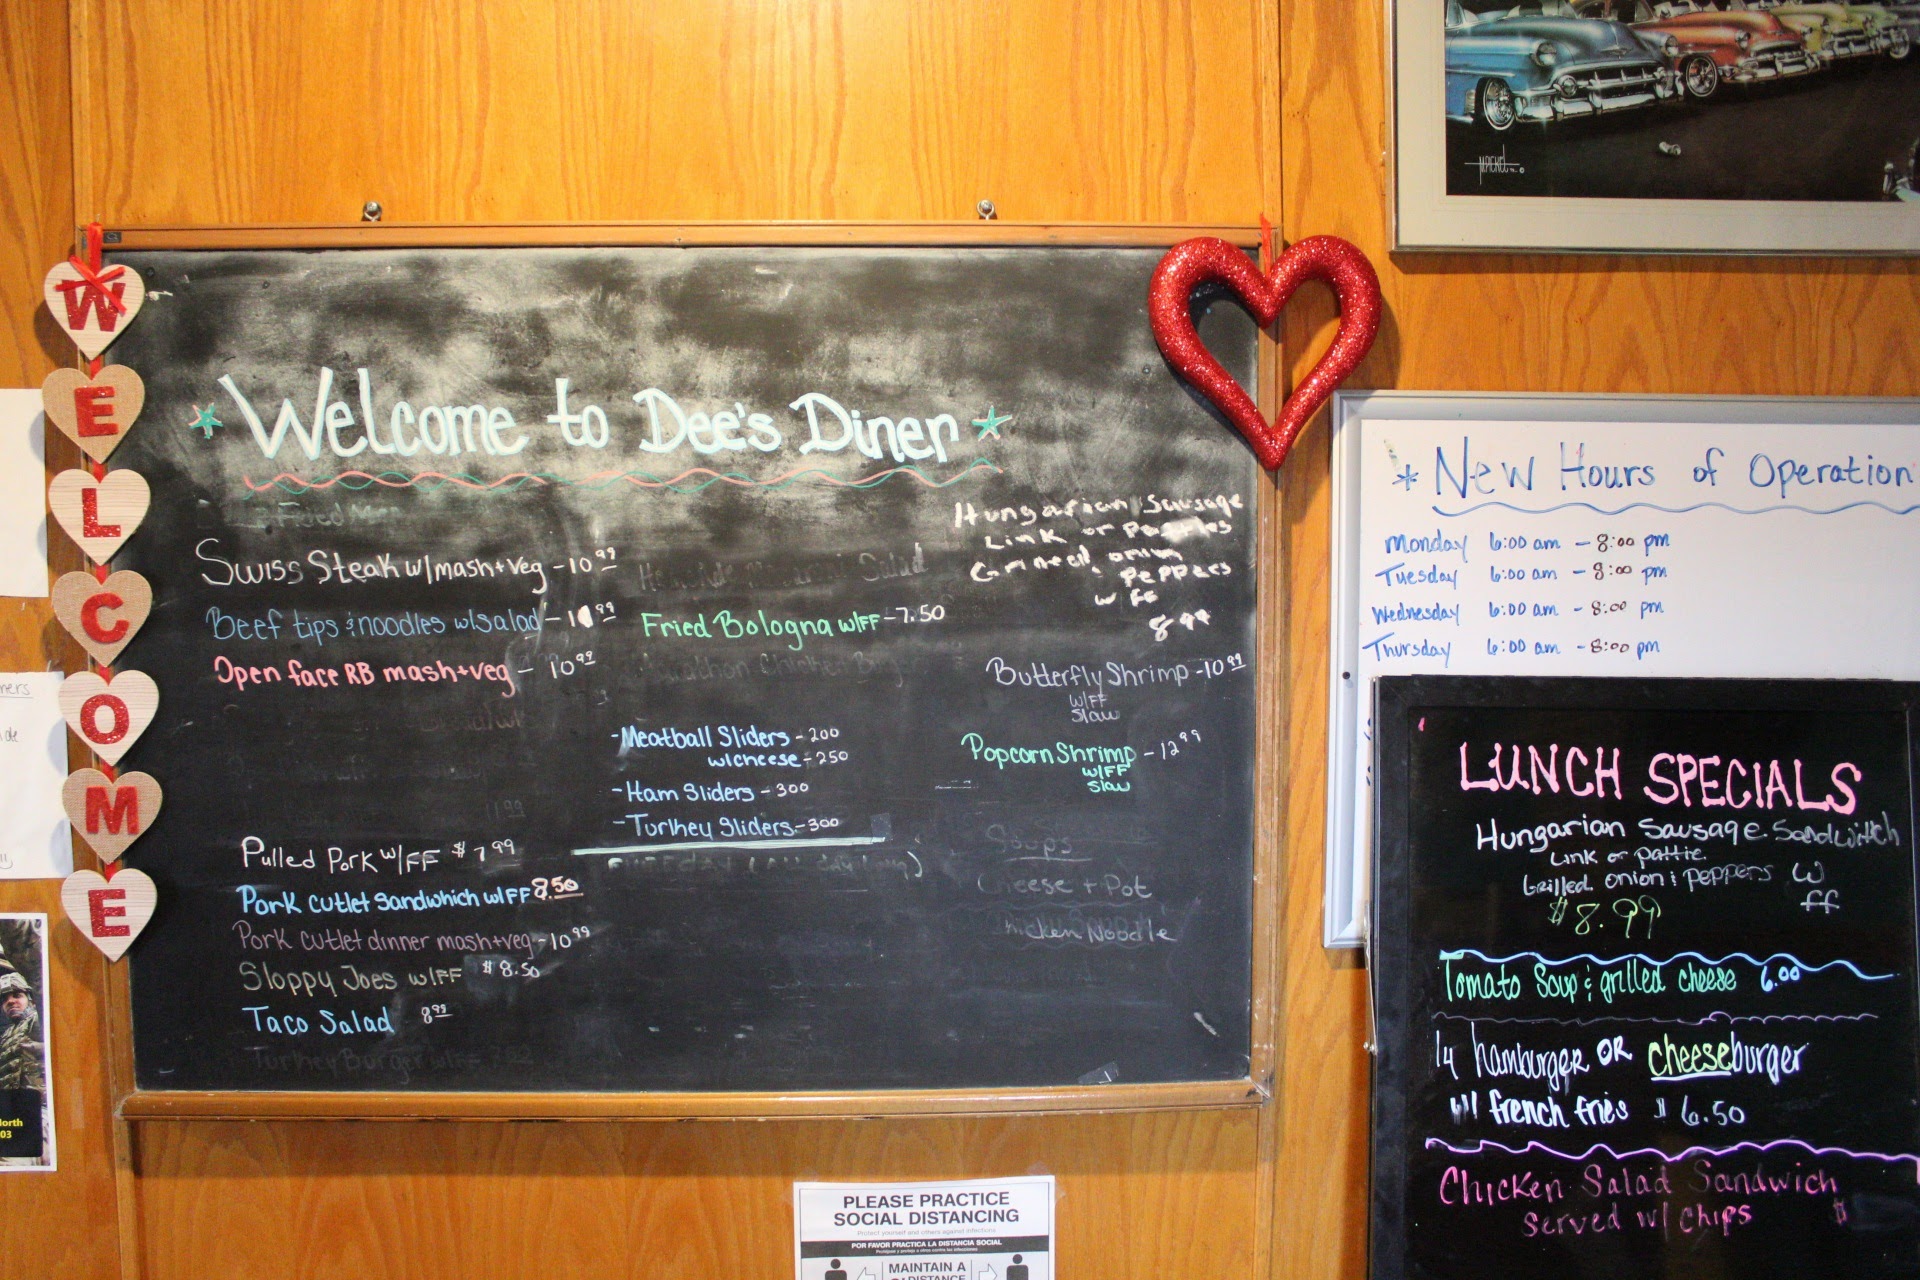 WELCOME
* Welcome to Dee's Diner *
Swiss Steak w/mash+veg - 10 99
Beef tips & noodles w/salad - 11 99
Open face RB mash+veg - 10 99
Pulled Pork w/FF $7 99
Pork cutlet Sandwhich w/FF 8.50
Pork cutlet dinner mash+veg - 10 99
Sloppy Joes w/FF $8.50
Taco Salad 8 99
Turkey Burger w/FF
Salad
Fried Bologna w/FF - 7.50
- Meatball Sliders - 200
w/cheese - 250
- Ham Sliders - 300
- Turkey Sliders - 300
Hungarian Sausage
Link or Patties
Grilled onion
Peppers
w FF
8 99
Butterfly Shrimp - 10 99
w/FF
Slaw
Popcorn Shrimp - 12 99
w/FF
Slaw
Soups
Cheese + Pot
Chicken Noodle
M.PICKEL
* New Hours of Operation
Monday 6:00 am - 8:00 pm
Tuesday 6:00 am - 8:00 pm
Wednesday 6:00 am - 8:00 pm
Thursday 6:00 am - 8:00 pm
LUNCH SPECIALS
Hungarian Sausage Sandwitch
Link or pattie
Grilled onion & peppers w
ff
$8.99
Tomato Soup & grilled cheese 6.00
1/4 hamburger OR cheeseburger
w/ french fries $6.50
Chicken Salad Sandwich
Served w/ chips $
PLEASE PRACTICE
SOCIAL DISTANCING
Protect yourself and others against infections
POR FAVOR PRACTICA LA DISTANCIA SOCIAL
MAINTAIN A
DISTANCE
ners
de
North
03